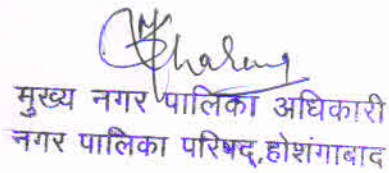 मुख्य नगर पालिका अधिकारी
नगर पालिका परिषद्,होशंगाबाद